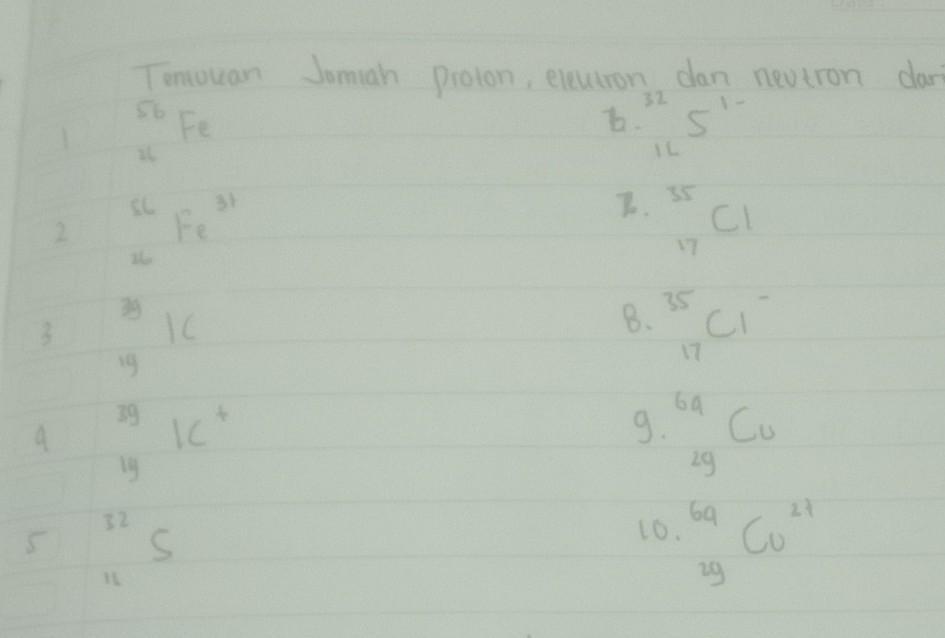 Tentukan Jumlah proton, elektron dan neutron dari
1 56 26 Fe
2 56 26 Fe 3+
3 39 19 K
4 39 19 K +
5 32 16 S
6. 32 16 S 1-
7. 35 17 Cl
8. 35 17 Cl -
9. 64 29 Cu
10. 64 29 Cu 2+